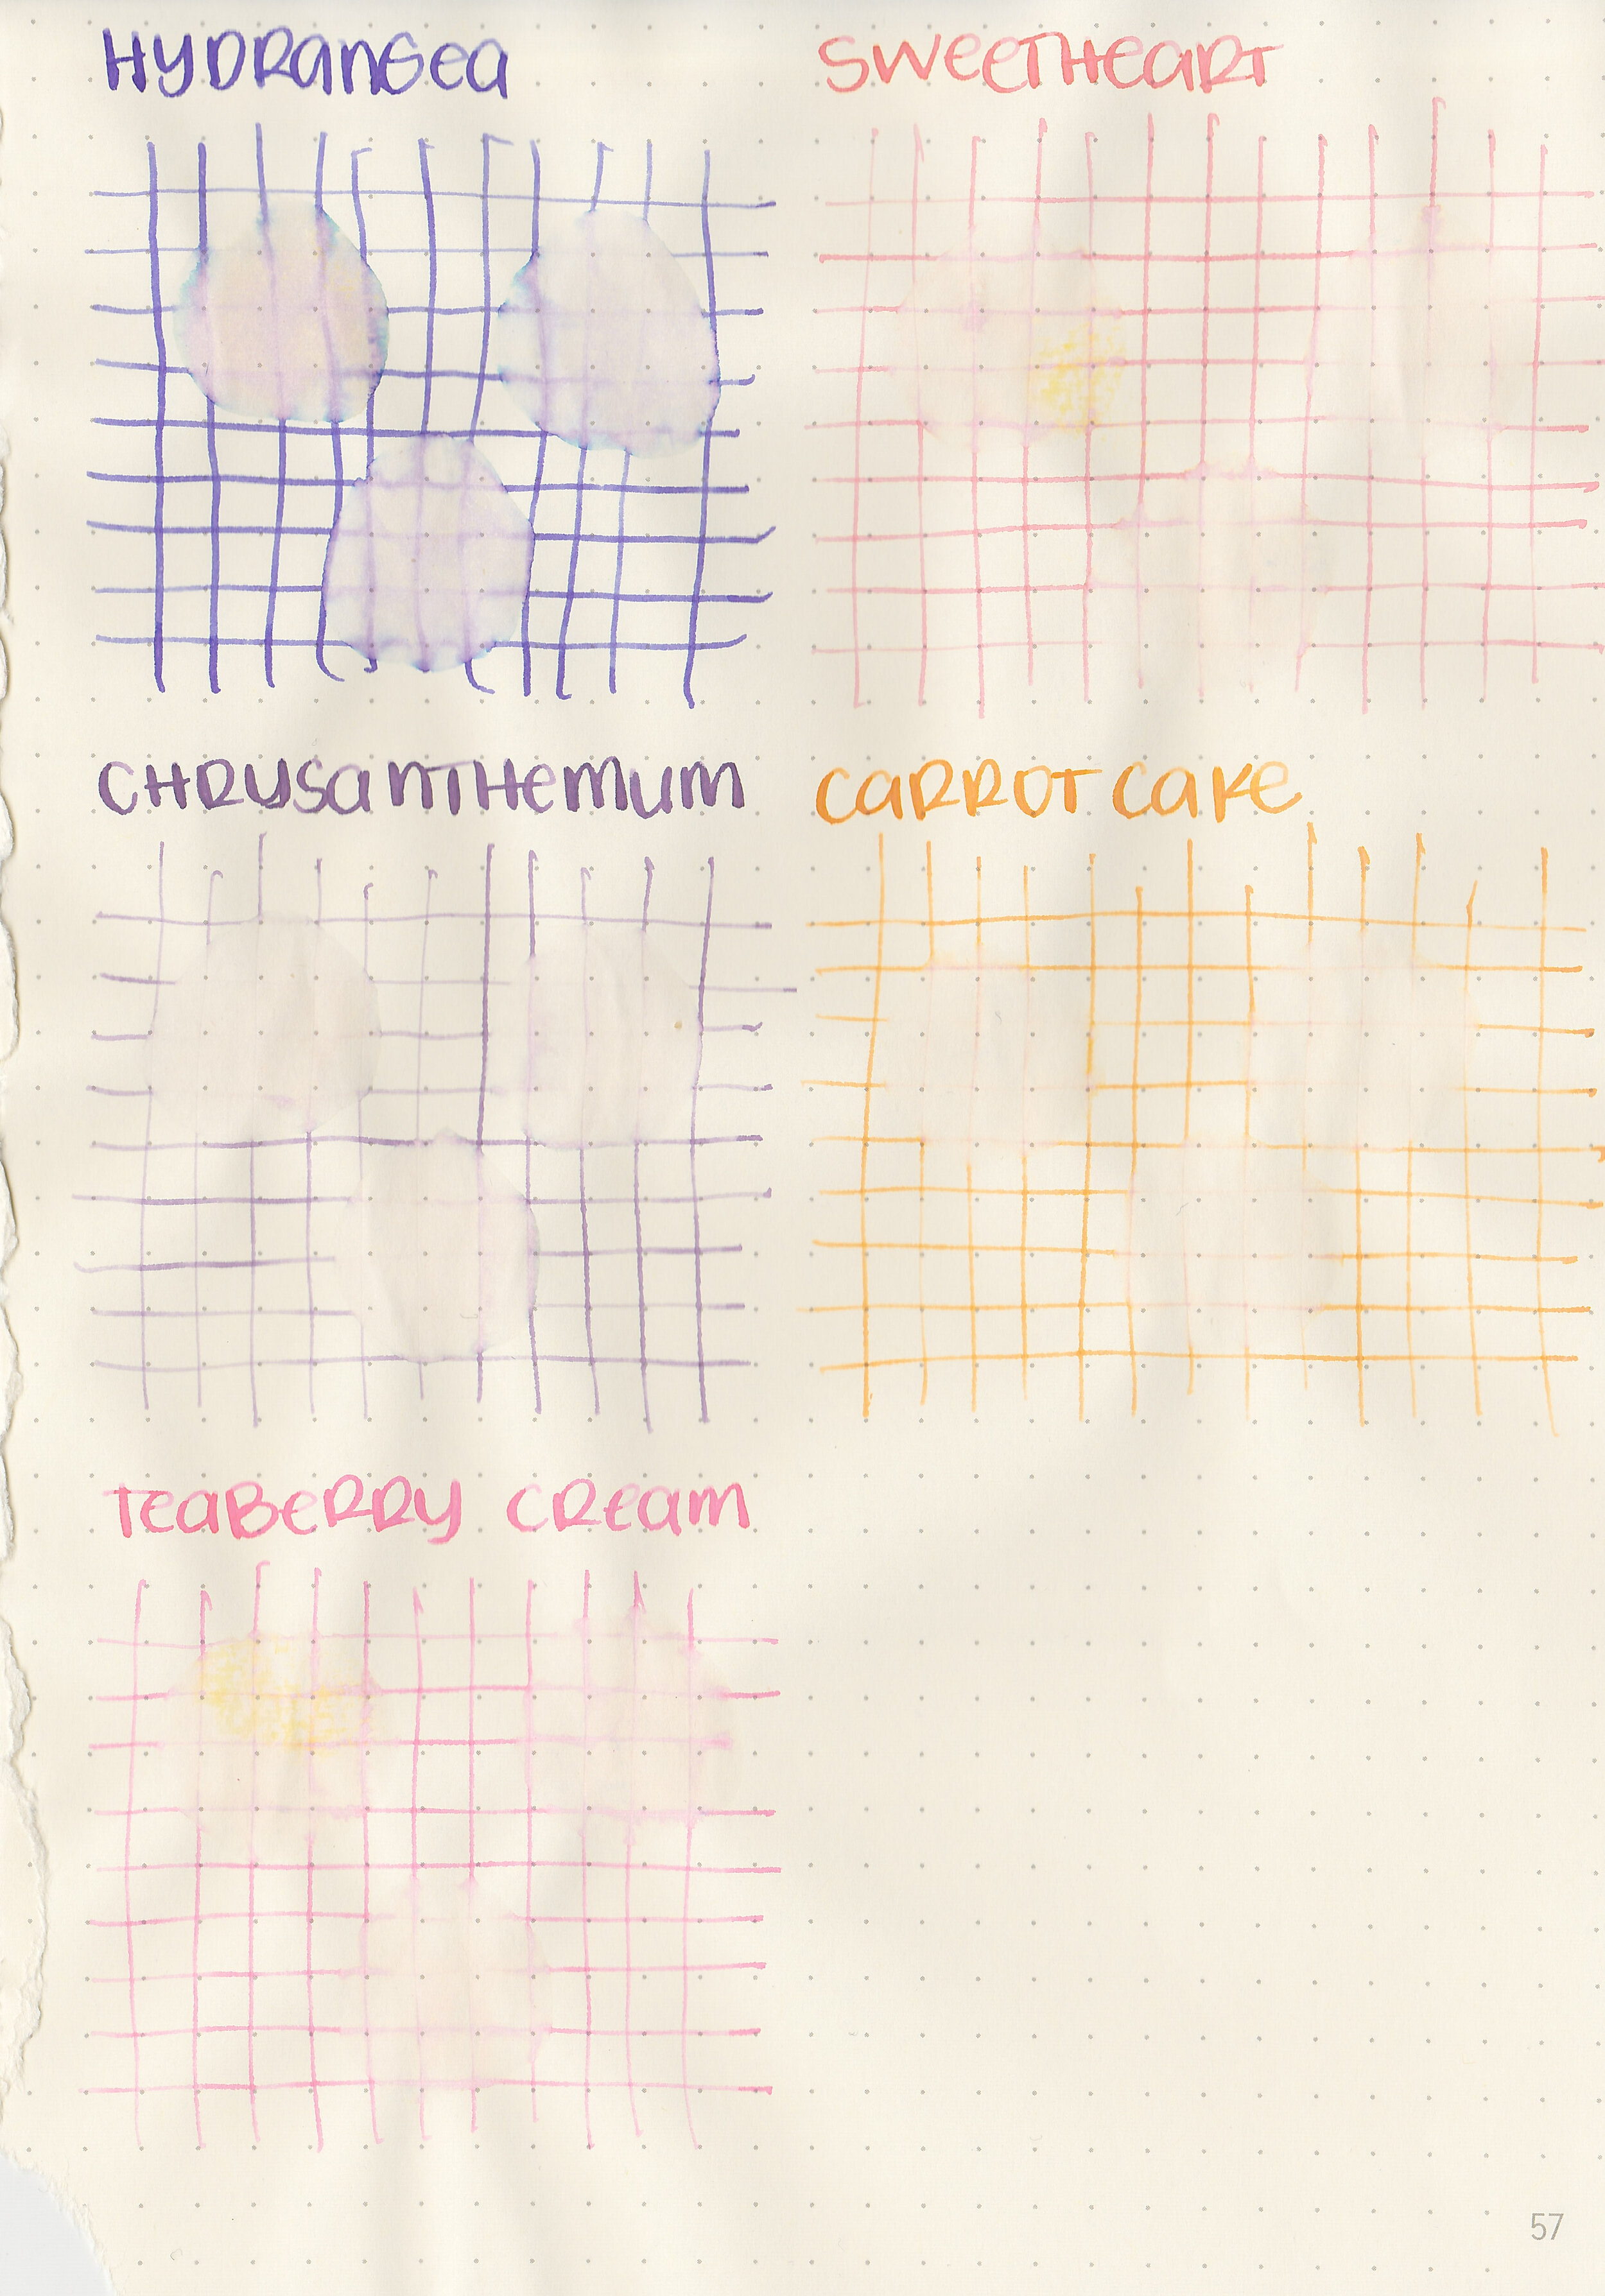 HYDRANGEA
SWEETHEART
CHRYSANTHEMUM
CARROT CAKE
TEABERRY CREAM
57